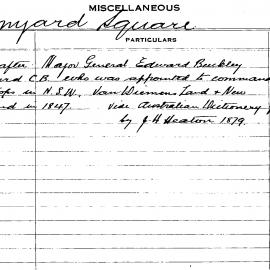 MISCELLANEOUS
nyard Square
PARTICULARS
after Major General Edward Buckley
ard C.B. who was appointed to command
ops in N.S.W. Van Diemens Land & New
nd in 1847. vide Australian Dictionery
by J.H. Heaton 1879.